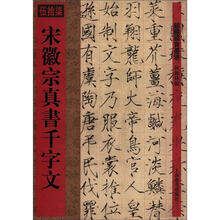 伍拾柒
宋徽宗真書千字文
重芥薑海鹹河淡鱗潛
羽翔龍師火帝鳥官人皇
始制文字乃服衣裳推位
讓國有虞陶唐弔民伐罪